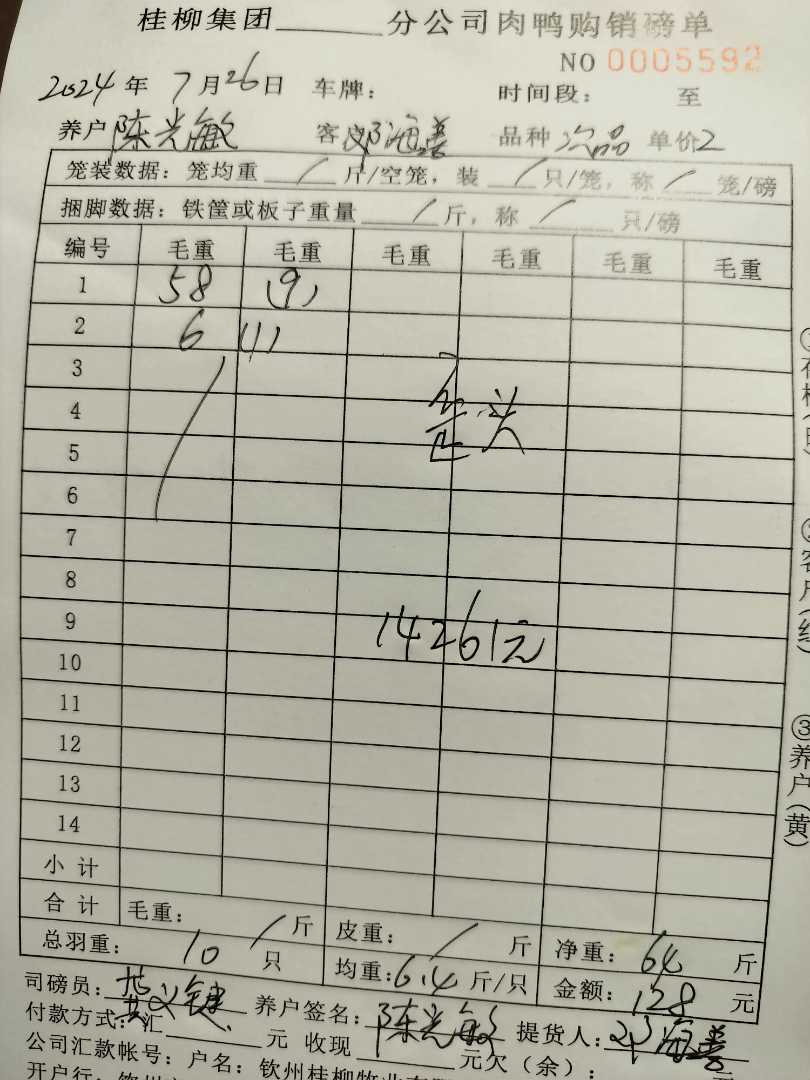 桂柳集团______分公司肉鸭购销磅单
NO 0005592
2024年 7月26日 车牌: 时间段: 至
养户 陈光敏 客户 邓海善 品种 次品 单价2
笼装数据: 笼均重 / 斤/空笼, 装 / 只/笼, 称 / 笼/磅
捆脚数据: 铁筐或板子重量 / 斤, 称 / 只/磅
编号 毛重 毛重 毛重 毛重 毛重 毛重
1 58 (9)
2 6 (1)
3
4 歪头
5
6
7
8
9 14261元
10
11
12
13
14
小计
合计 毛重: / 斤 皮重: / 斤 净重: 64 斤
总羽重: 10 只 均重: 6.4 斤/只 金额: 128 元
司磅员: 养户签名: 陈光敏 提货人: 邓海善
付款方式: 汇______元 收现______元欠(余):
公司汇款帐号: 户名: 钦州桂柳牧业有限
开户行:
客户(红)
③养户(黄)